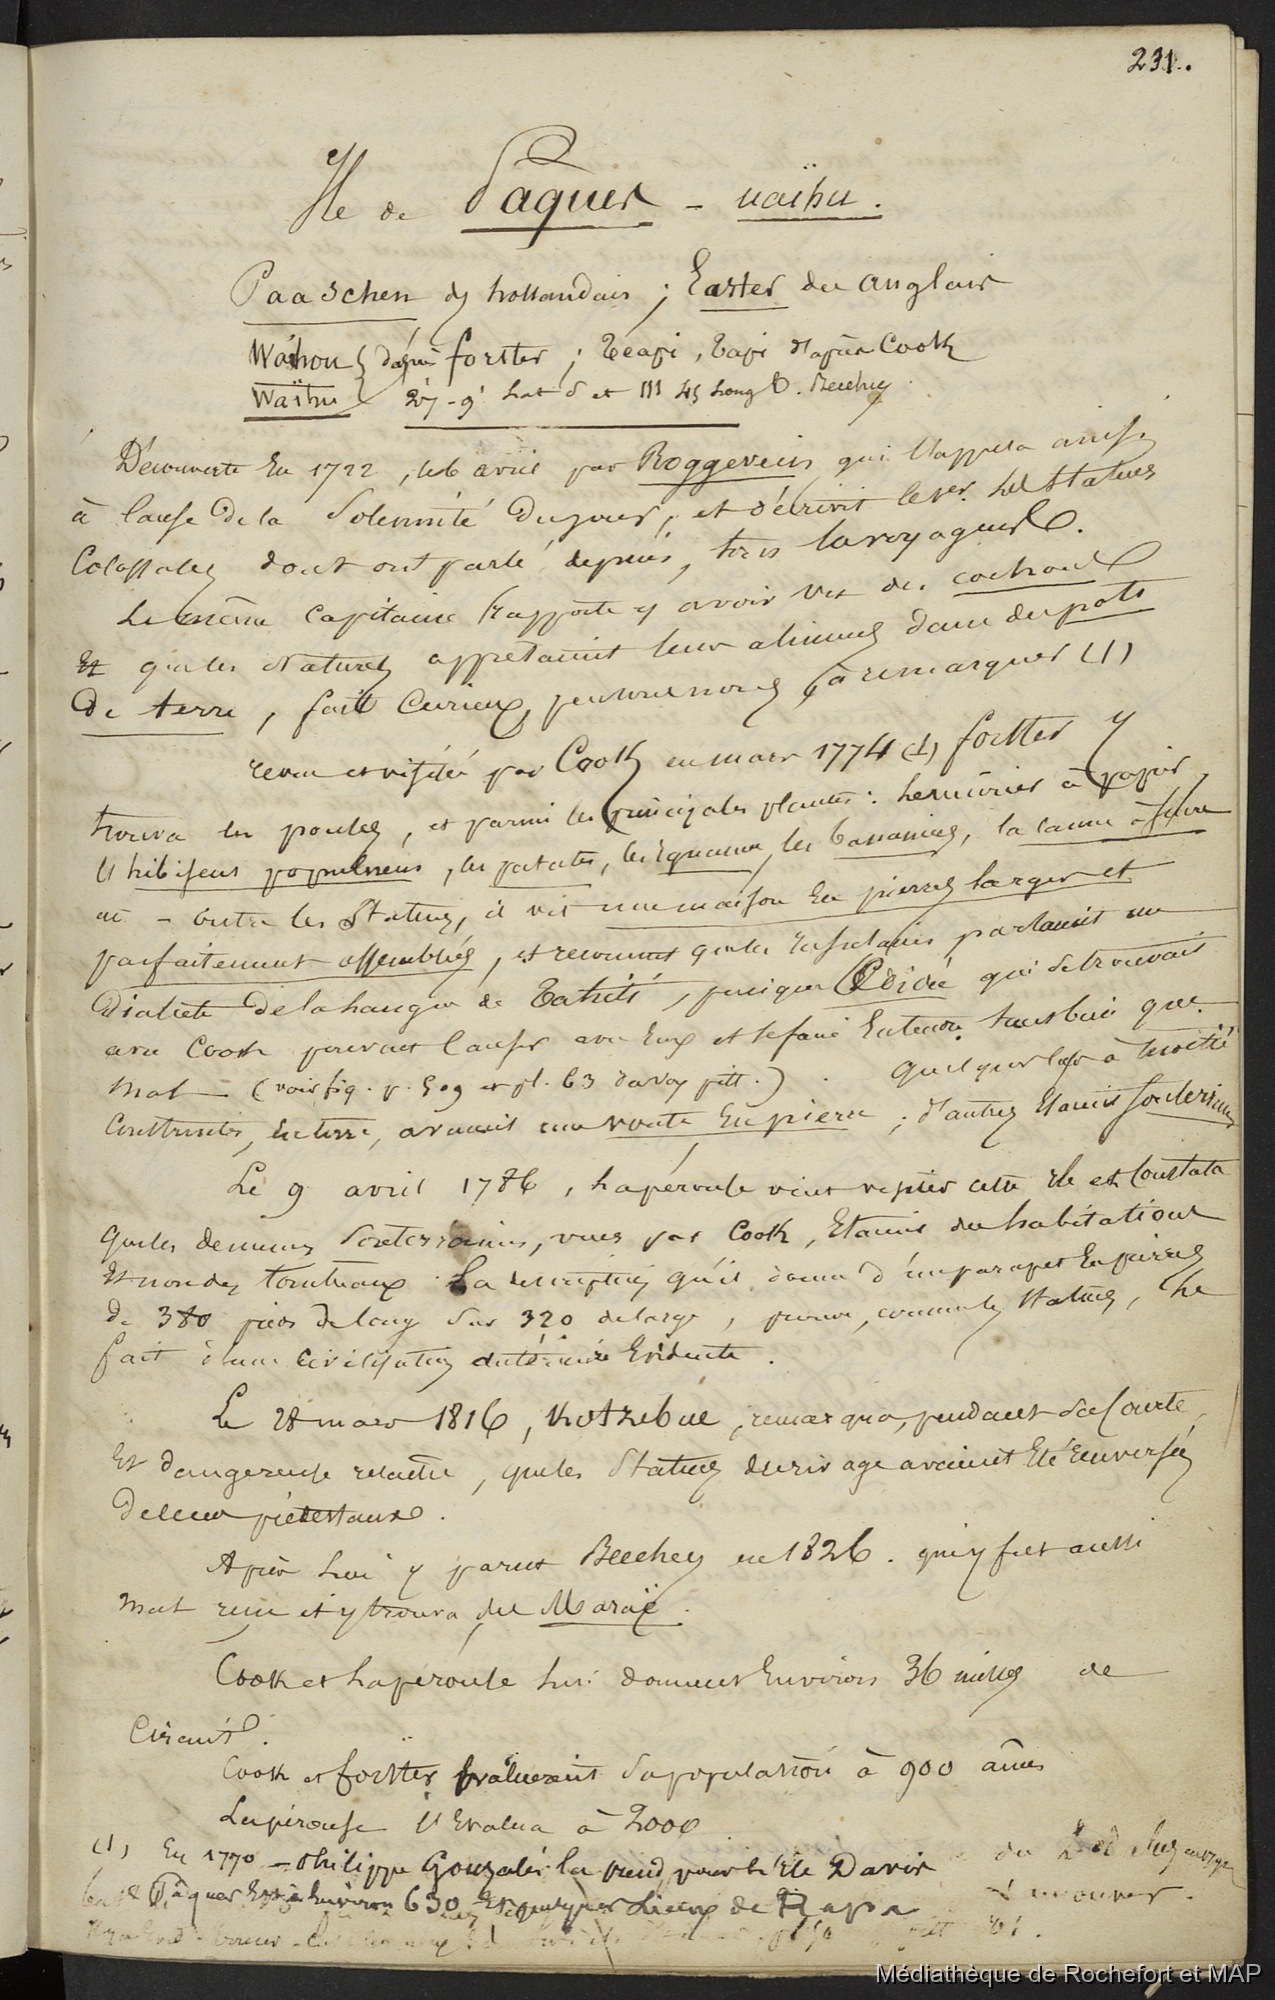 231.
Ile de Pâques - uaïhu.
Paaschen des hollandais ; Easter des anglais
Waïhou } d'après forster ; Téapi, Tapi d'après Cook
Waïhu } 27-9' Lat S et 111 45 Long O. Beechey.
Découverte En 1722, le 6 avril par Roggevein qui l'appela ainsi
à Cause De la Solennité Du jour, et décrivit le 1er. les Statues
Colossales dont ont parlé depuis, tous les voyageurs.
Le même Capitaine rapporte y avoir vu des cochons
Et que les Naturels apprêtaient leurs alimens dans des pots
De terre, fait Curieux, pensons nous, à remarquer (1)
revue et visitée par Cook en mars 1774 (1) forster y
trouva les poules, et parmi les principales plantes : le mûrier à papier,
l'hibiscus populneus, les patates, les ignames, les bananiers, la canne à sucre
etc - outre les Statues, il vit une maison En pierres larges et
parfaitement assemblées, et reconnut que les Insulaires parlaient un
Dialecte De la Langue de Tahiti, puisque Œdidée qui se trouvait
avec Cook pouvait Causer avec Eux et se faire Entendre tant bien que
mal - (voir fig. p. 509 et pl. 63 du Voy pitt.). Quelques unes à moitié
Construites, en terre, avaient une voute En pierre ; d'autres Etaient souterraines
Le 9 avril 1786, Lapérouse vint visiter cette Ile et Constata
que les demeures Souterraines, vues par Cook, Etaient des habitations
Et non des tombeaux. La description qu'il donne d'un parapet En pierres
de 380 pieds de long sur 320 de large, prouve, comme les Statues, le
fait d'une Civilisation antérieure Evidente.
Le 28 mars 1816, Kotzebue, remarqua, pendant sa Courte,
Et dangereuse relâche, que les Statues du rivage avaient Eté renversées
De leur piédestaux.
Après lui y parut Beechey en 1826. qui y fut aussi
mal reçu et y trouva des Maraë.
Cook et Lapérouse lui donnent Environ 36 milles de
Circuit.
Cook et forster évaluèrent sa population à 900 âmes
Lapérouse l'Evalua à 2000
(1) En 1770 - Philippe Gonzalès la prend pour l'Ile Davis
Pâques Est à Environ 630 lieux de Rapa
Médiathèque de Rochefort et MAP